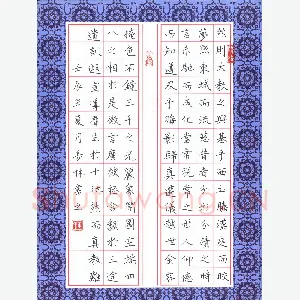 然則大教之興基乎西土騰漢庭而皎
夢照東域而流慈昔者分形分跡之時
言未馳而成化當常現常之世人仰德
而知遵及乎晦影歸真遷儀越世金容
掩色不鏡三千之光麗象開圖空端四
八之相於是微言廣被拯含類於三途
遺訓遐宣導群生於十地然而真教難
壬辰夏月